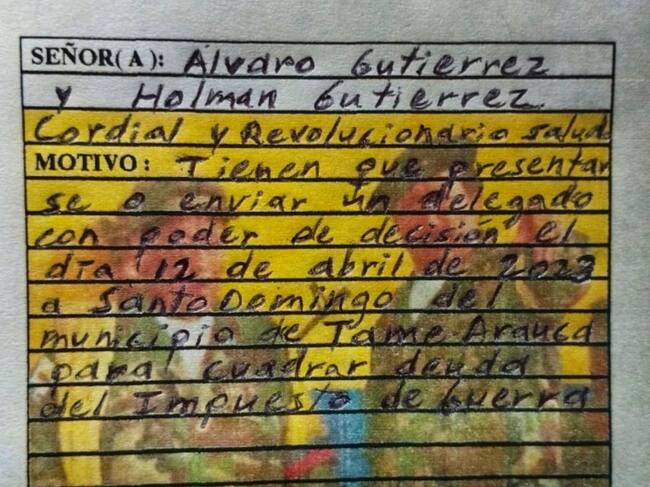 SEÑOR(A): Alvaro Gutierrez
y Holman Gutierrez
Cordial y Revolucionario salud
MOTIVO: Tienen que presentar
se o enviar un delegado
con poder de decisión el
día 12 de abril de 2023
a Santo Domingo del
municipio de Tame-Arauca
para cuadrar deuda
del Impuesto de Guerra